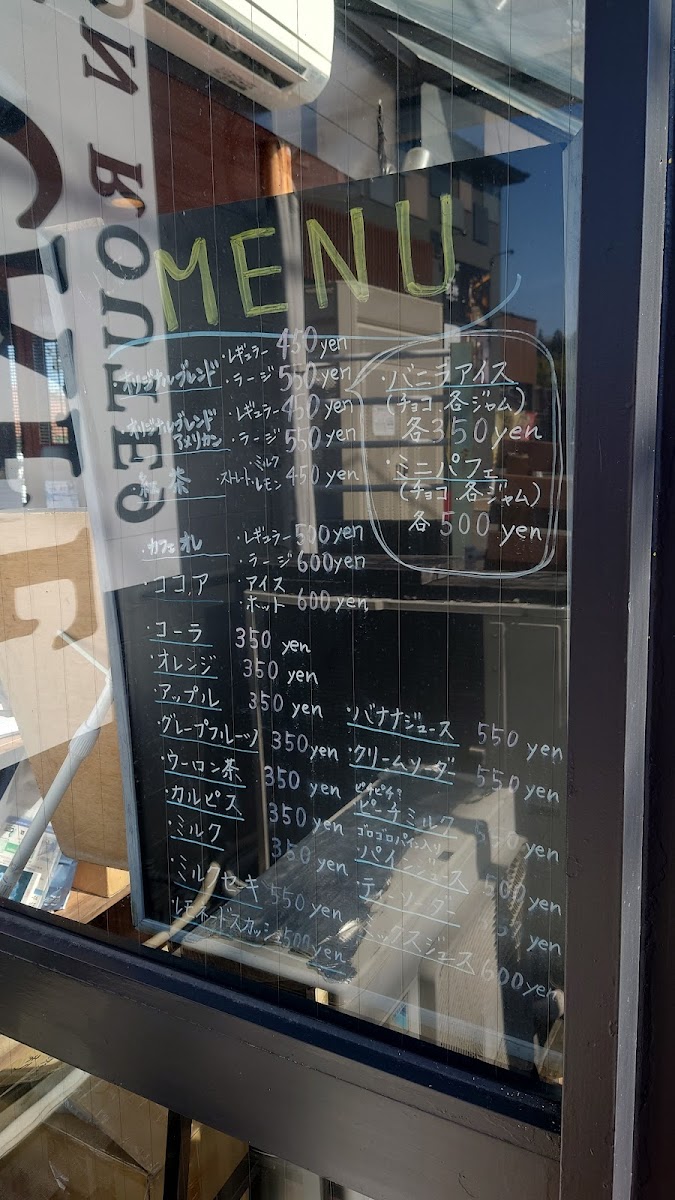 MENU
・オリジナルブレンド ・レギュラー 450 yen
・ラージ 550 yen
・オリジナルブレンド アメリカン ・レギュラー 450 yen
・ラージ 550 yen
紅茶 ・ストレート・ミルク・レモン 450 yen
・カフェオレ ・レギュラー 500 yen
・ラージ 600 yen
・ココア ・アイス
・ホット 600 yen
・コーラ 350 yen
・オレンジ 350 yen
・アップル 350 yen
・グレープフルーツ 350 yen
・ウーロン茶 350 yen
・カルピス 350 yen
・ミルク 350 yen
・ミルクセーキ 550 yen
・レモネードスカッシュ 500 yen
・バニラアイス
(チョコ.各ジャム)
各350 yen
・ミニパフェ
(チョコ.各ジャム)
各500 yen
・バナナジュース 550 yen
・クリームソーダー 550 yen
ピーチミルク yen
ゴロゴロパイン入り
・パインジュース 500 yen
・ティーソーダー yen
ミックスジュース 600 yen
ROUTE